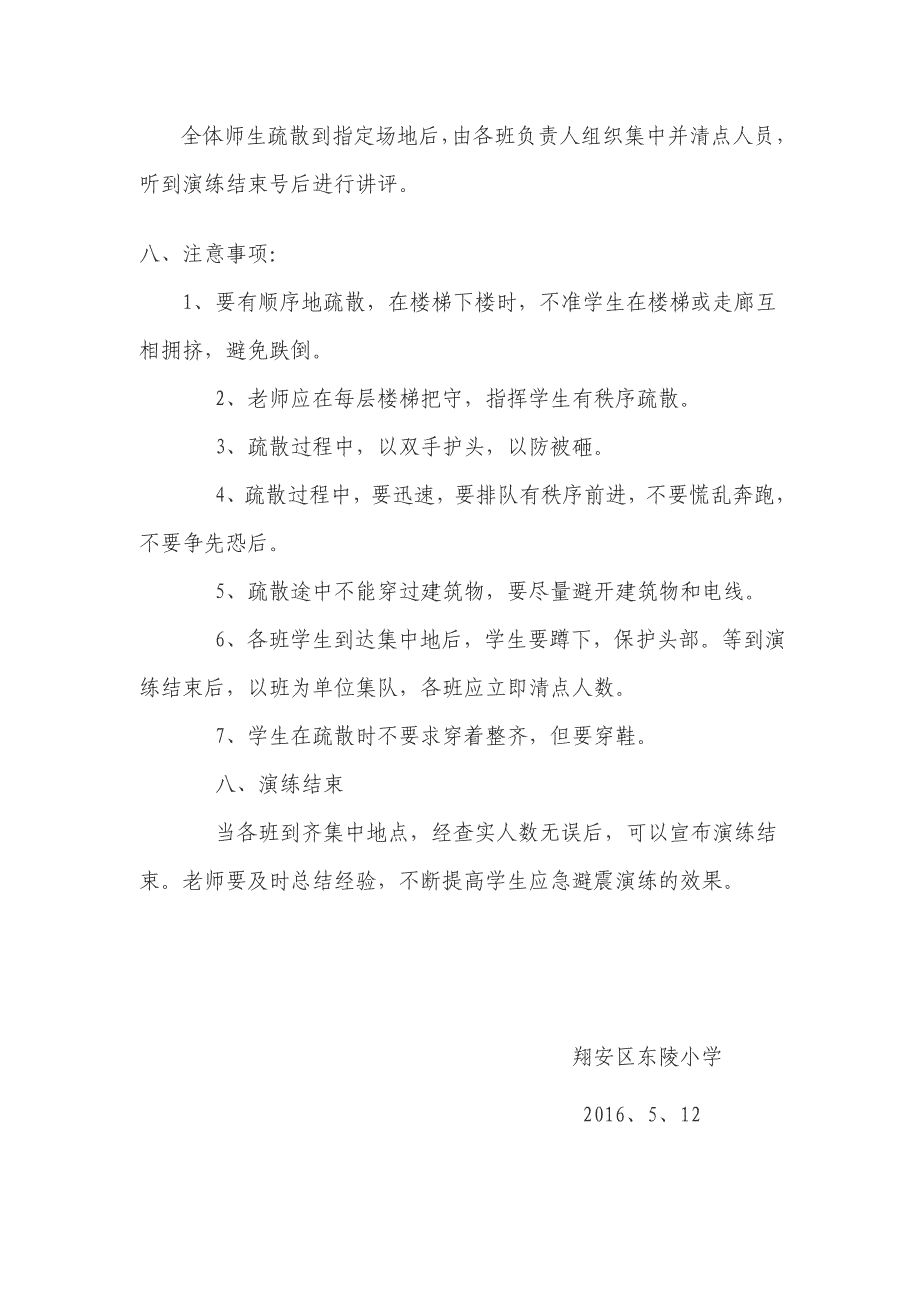 全体师生疏散到指定场地后，由各班负责人组织集中并清点人员，
听到演练结束号后进行讲评。
八、注意事项：
1、要有顺序地疏散，在楼梯下楼时，不准学生在楼梯或走廊互
相拥挤，避免跌倒。
2、老师应在每层楼梯把守，指挥学生有秩序疏散。
3、疏散过程中，以双手护头，以防被砸。
4、疏散过程中，要迅速，要排队有秩序前进，不要慌乱奔跑，
不要争先恐后。
5、疏散途中不能穿过建筑物，要尽量避开建筑物和电线。
6、各班学生到达集中地后，学生要蹲下，保护头部。等到演
练结束后，以班为单位集队，各班应立即清点人数。
7、学生在疏散时不要求穿着整齐，但要穿鞋。
八、演练结束
当各班到齐集中地点，经查实人数无误后，可以宣布演练结
束。老师要及时总结经验，不断提高学生应急避震演练的效果。
翔安区东陵小学
2016、5、12